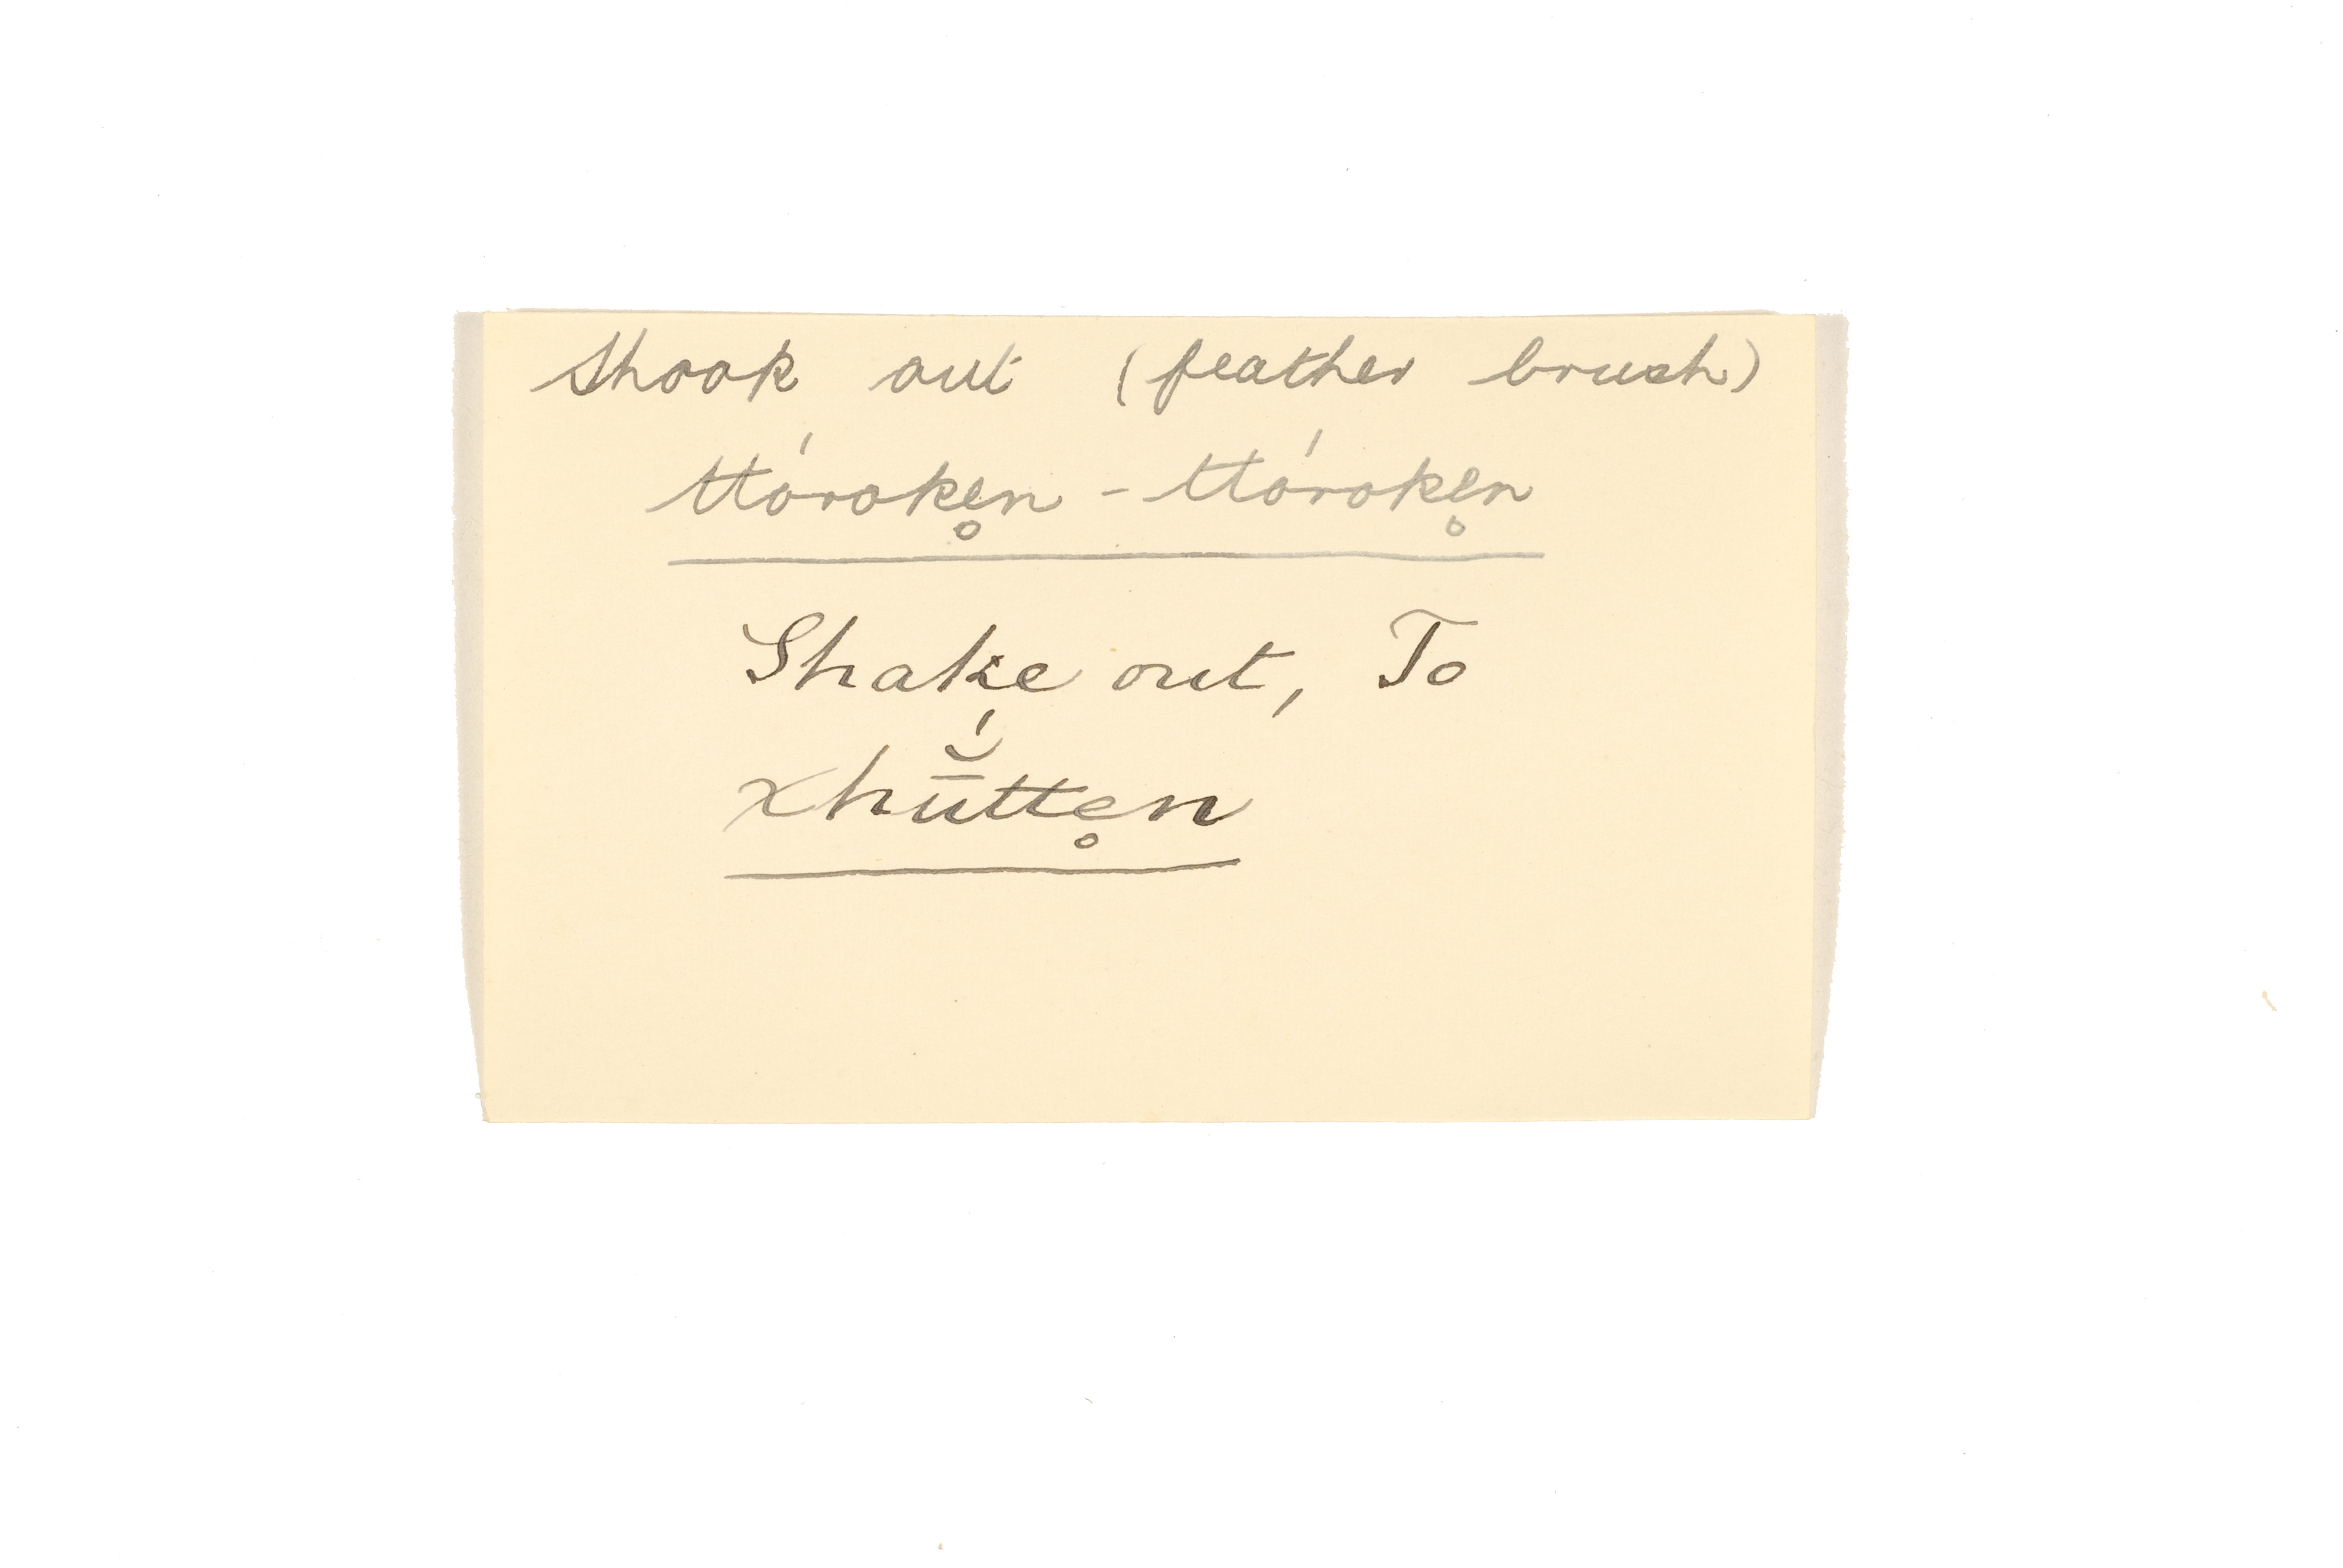 Shook out (feather brush)
ttóroke̥n - ttóroke̥n
Shake out, To
xhū̆́tte̥n